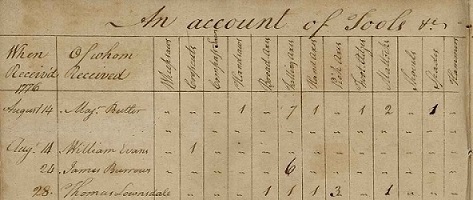 An account of Tools &c.
When Of whom Whipsaws Crosscuts Compass Saws Handsaws Broad Axes Felling Axes Hand Axes Pick Axes Mattocks Shovels Spades Hammers
Receiv'd Received
1776
August 14 Majr. Butler " " " 1 " 7 1 " 1 2 " 1 "
Augt. 14 William Evans " 1 " " " " " " " " " " "
24 James Burrows " " " " " 6 " " " " " " "
28 Thomas " " " " 1 1 1 3 " 1 " " "